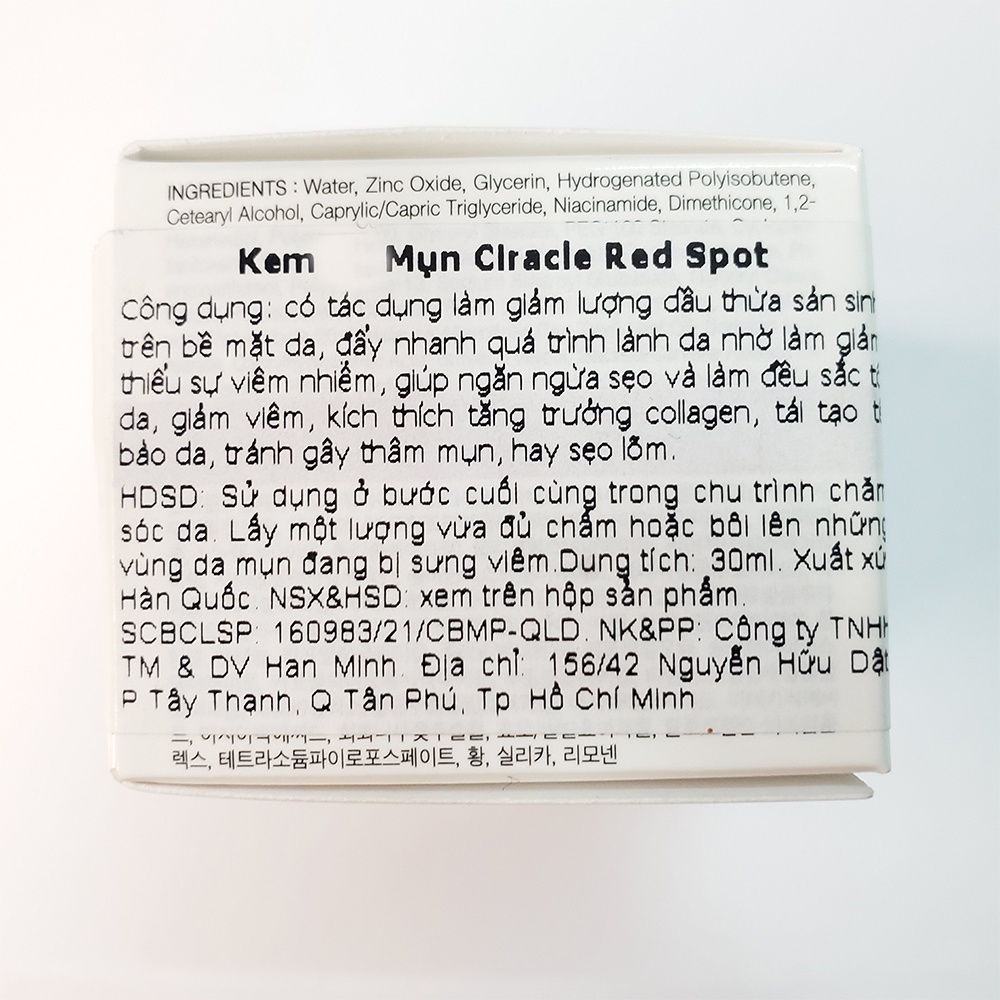 INGREDIENTS : Water, Zinc Oxide, Glycerin, Hydrogenated Polyisobutene,
Cetearyl Alcohol, Caprylic/Capric Triglyceride, Niacinamide, Dimethicone, 1,2-
Kem Mụn Ciracle Red Spot
Công dụng: có tác dụng làm giảm lượng dầu thừa sản sinh
trên bề mặt da, đẩy nhanh quá trình lành da nhờ làm giảm
thiểu sự viêm nhiễm, giúp ngăn ngừa sẹo và làm đều sắc tố
da, giảm viêm, kích thích tăng trưởng collagen, tái tạo t
bảo da, tránh gây thâm mụn, hay sẹo lõm.
HDSD: Sử dụng ở bước cuối cùng trong chu trình chăm
sóc da. Lấy một lượng vừa đủ chấm hoặc bôi lên những
vùng da mụn đang bị sưng viêm.Dung tích: 30ml. Xuất xứ
Hàn Quốc. NSX&HSD: xem trên hộp sản phẩm.
SCBCLSP: 160983/21/CBMP-QLD. NK&PP: Công ty TNHH
TM & DV Han Minh. Địa chỉ: 156/42 Nguyễn Hữu Dật
P Tây Thạnh, Q Tân Phú, Tp Hồ Chí Minh
렉스, 테트라소듐파이로포스페이트, 황, 실리카, 리모넨